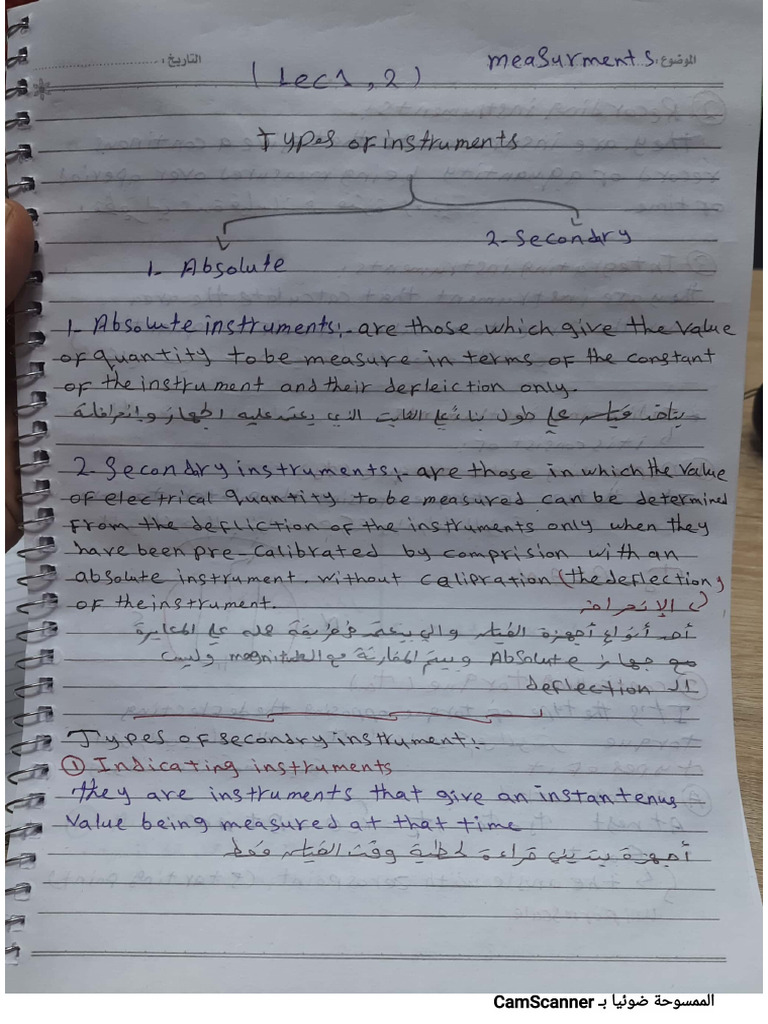 الموضوع: measurment s التاريخ:
( Lec 1, 2 )
Types of instruments
2- Secondry
1- Absolute
1- Absolute instruments:- are those which give the value
of quantity to be measure in terms of the constant
of the instrument and their defleiction only.
على طول بناءً على الثابت الذي يعتمد عليه الجهاز وانحرافلة
2- Secondiry instruments:- are those in which the value
of electrical quantity to be measured can be determined
From the defliction of the instruments only when they
have been pre-calibrated by comprision with an
absolute instrument. without calipration (the deflection)
of the instrument. الإنحراف
أحد أنواع أجهزة القياس والي يعتمد في طريقة عمله على المعايرة
مع جهاز Absolute ويتم المقارنة مع ال magnitude وليس
ال deflection
Types of secondry instrument:-
① Indicating instruments
they are instruments that give an instantenus
value being measured at that time
أجهزة بتديني قراءة لحظية وقت القياس فقط
الممسوحة ضوئيا بـ CamScanner